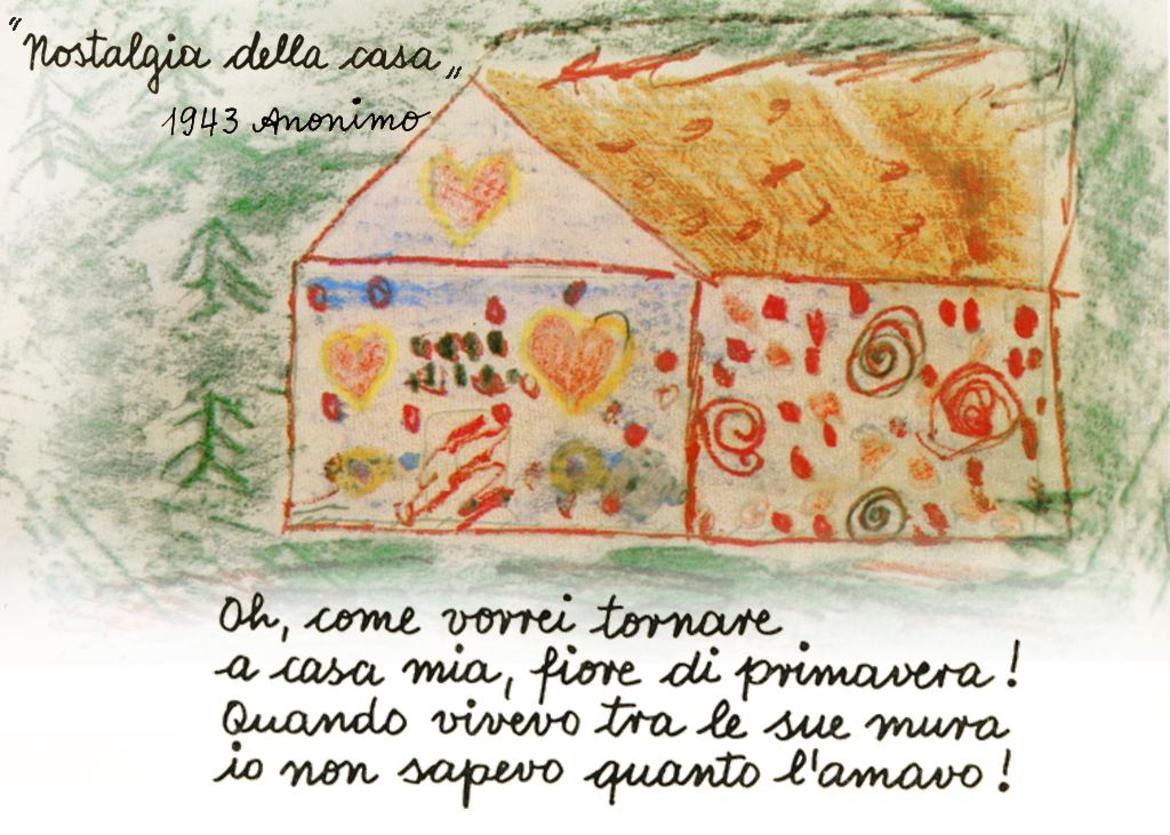 "Nostalgia della casa„
1943 Anonimo
Oh, come vorrei tornare
a casa mia, fiore di primavera!
Quando vivevo tra le sue mura
io non sapevo quanto l'amavo!